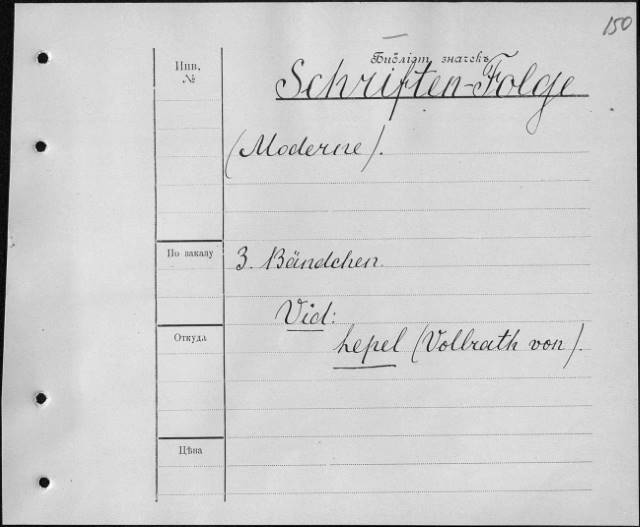 150
Библіот. значекъ
Инв.
№
Schriften-Folge
(Moderne).
По заказу
3. Bändchen.
Vid:
Откуда
Lepel (Vollrath von).
Цѣна